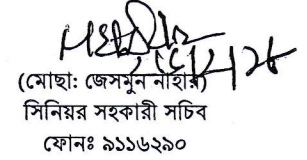 (মোছা: জেসমুন নাহার)
সিনিয়র সহকারী সচিব
ফোনঃ ৯১১৬২৯০